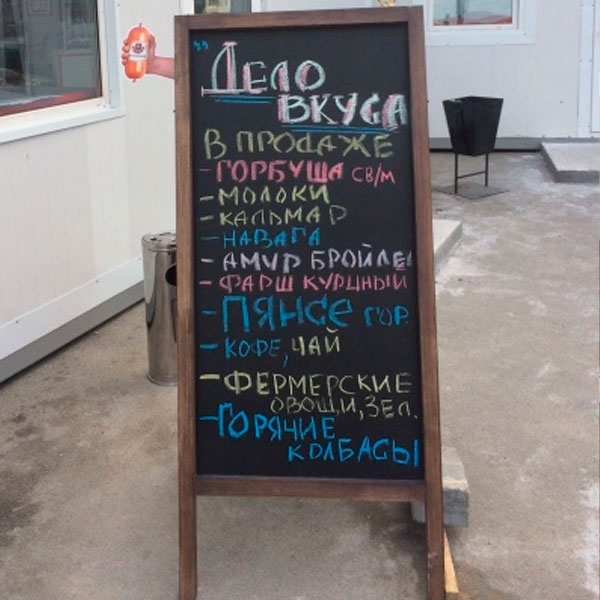 "Дело
ВКУСА
В ПРОДАЖЕ
- ГОРБУША св/м
- МОЛОКИ
- КАЛЬМАР
- НАВАГА
- АМУР БРОЙЛЕ
- ФАРШ КУРИНЫЙ
- ПЯНСЕ ГОР.
- КОФЕ, ЧАЙ
- ФЕРМЕРСКИЕ
ОВОЩИ, ЗЕЛ.
- ГОРЯЧИЕ
КОЛБАСЫ